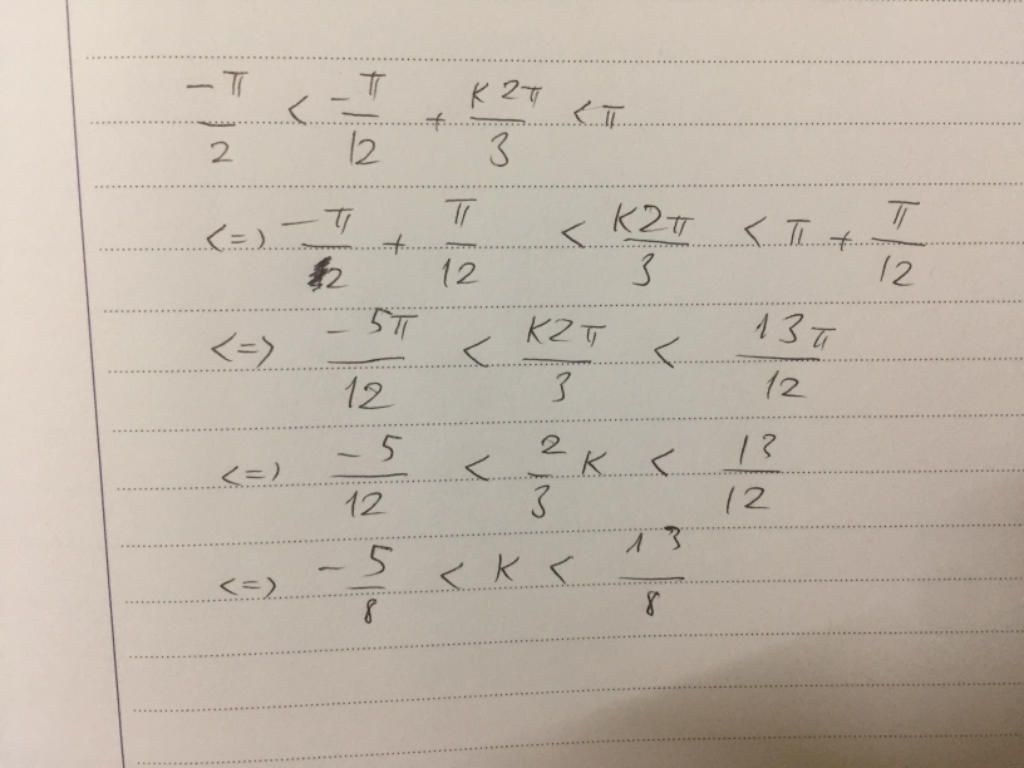 -π/2 < -π/12 + K2π/3 < π
<=> -π/2 + π/12 < K2π/3 < π + π/12
<=> -5π/12 < K2π/3 < 13π/12
<=> -5/12 < 2/3 K < 13/12
<=> -5/8 < K < 13/8